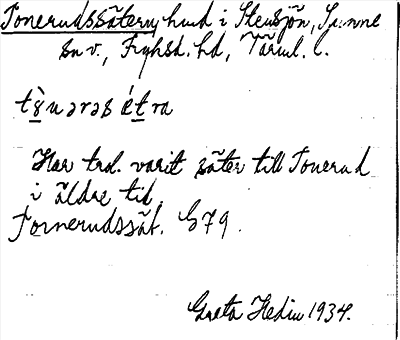 Tonerudssätern, hmd i Stensjön, Sunne
sn v., Fryksd. hd, Värml. l.
Har trol. varit säter till Tonerud
i äldre tid.
Tornerudssät. G 79.
Greta Hedin 1934.